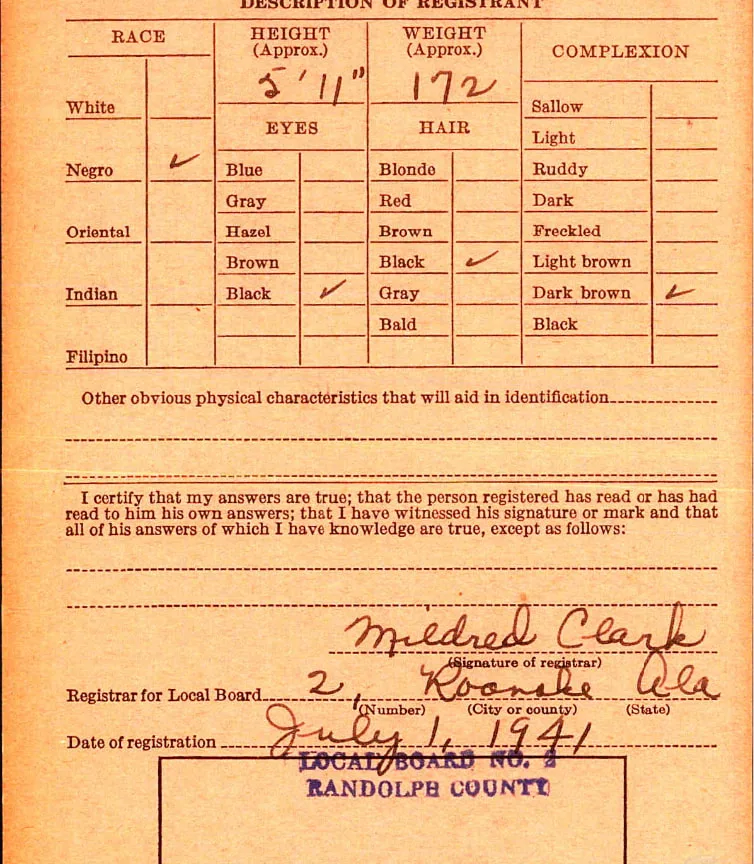 DESCRIPTION OF REGISTRANT
RACE
HEIGHT
(Approx.)
WEIGHT
(Approx.)
COMPLEXION
5' 11"
172
EYES
HAIR
White
Negro ✓
Oriental
Indian
Filipino
Blue
Gray
Hazel
Brown
Black ✓
Blonde
Red
Brown
Black ✓
Gray
Bald
Sallow
Light
Ruddy
Dark
Freckled
Light brown
Dark brown ✓
Black
Other obvious physical characteristics that will aid in identification
I certify that my answers are true; that the person registered has read or has had
read to him his own answers; that I have witnessed his signature or mark and that
all of his answers of which I have knowledge are true, except as follows:
Mildred Clark
(Signature of registrar)
Registrar for Local Board 2, Roanoke Ala
(Number) (City or county) (State)
Date of registration July 1, 1941
LOCAL BOARD NO. 2
RANDOLPH COUNTY